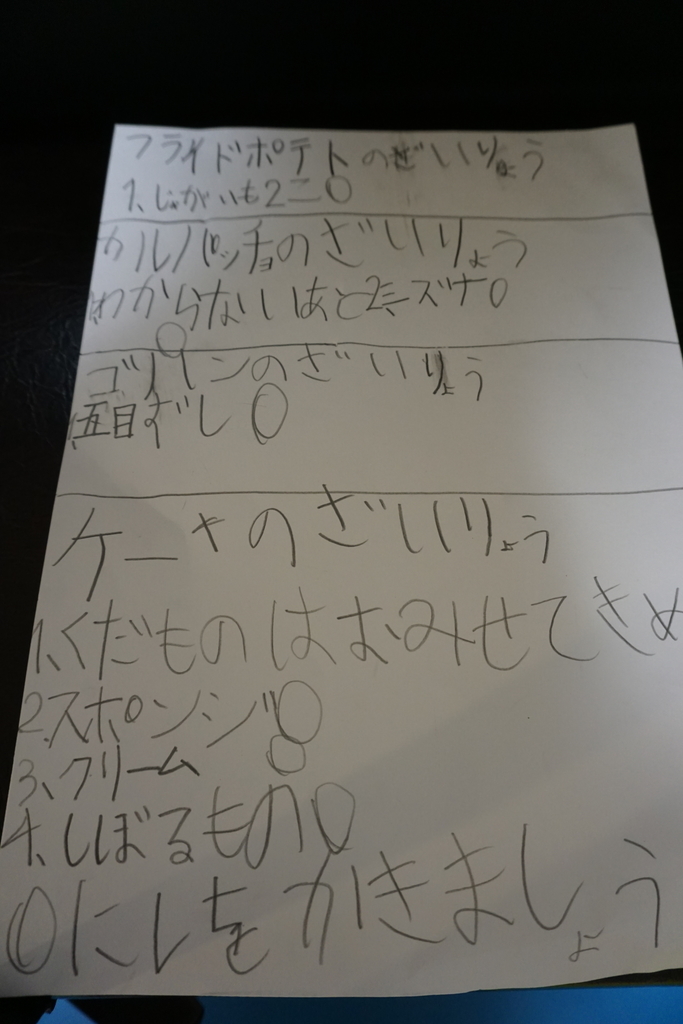 フライドポテトのざいりょう
1、じゃがいも2こ〇
カルパッチョのざいりょう
わからないあと ミズナ〇
ゴパンのざいりょう
五目ずし〇
ケーキのざいりょう
1、くだものはおみせできめ
2、スポンジ〇
3、クリーム〇
4、しぼるもの〇
〇にレをかきましょう